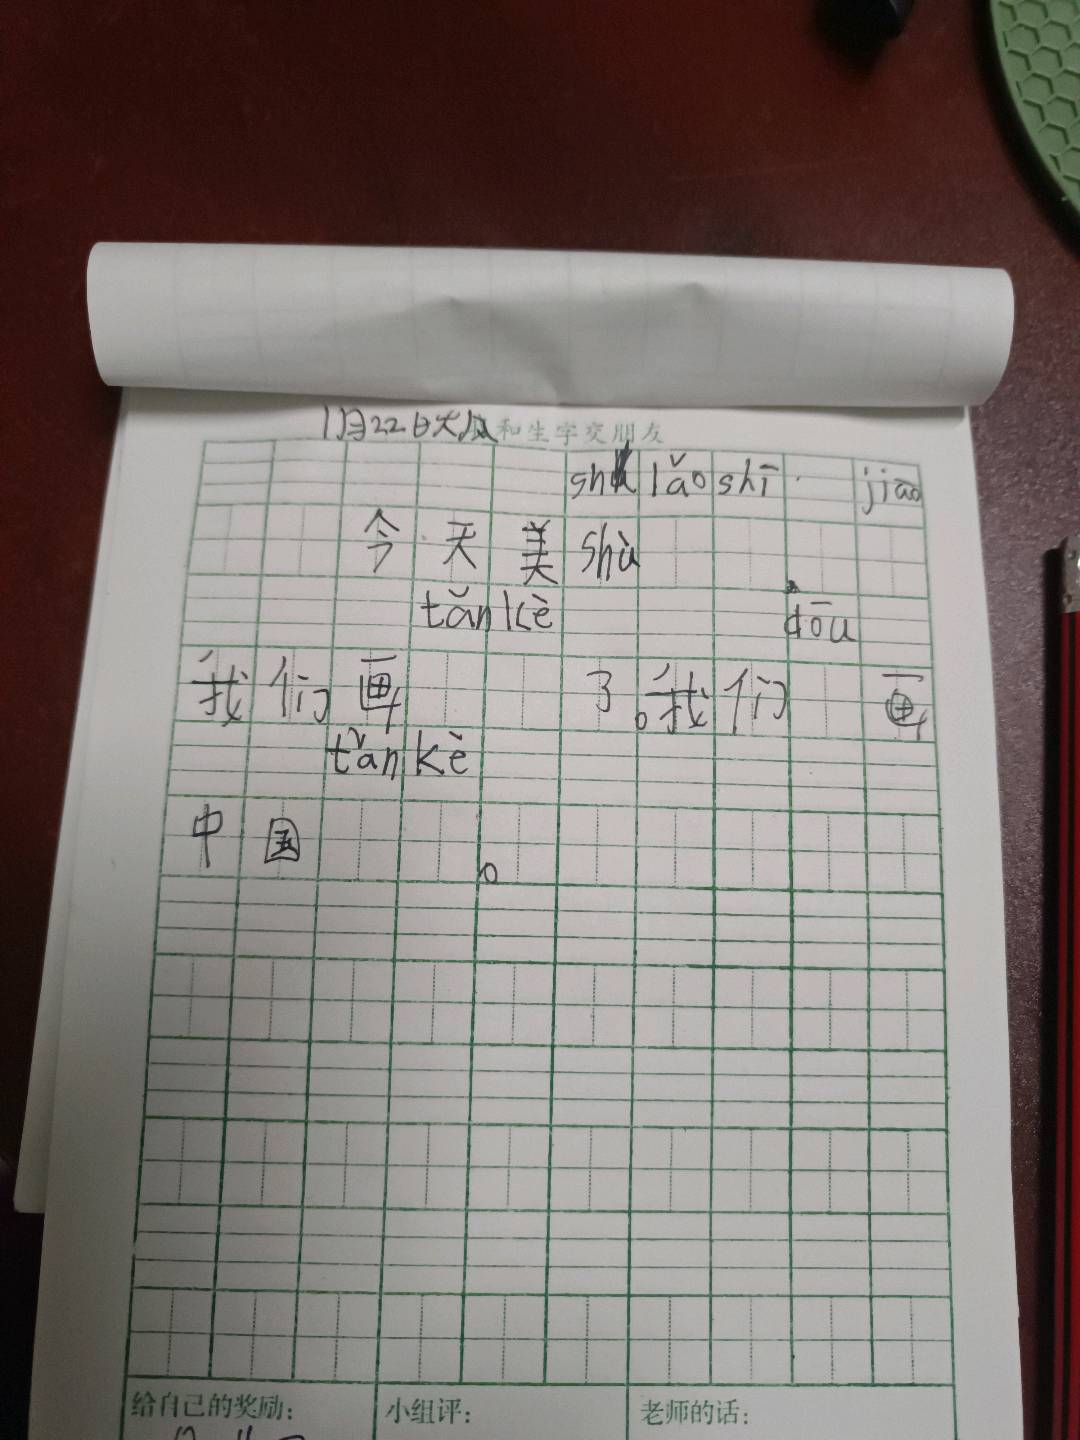 1月22日大风和生字交朋友
shù lǎo shī jiāo
今天美shù
tǎn kè dōu
我们画 了。我们 画
tǎn kè
中国 。
给自己的奖励: 小组评: 老师的话: